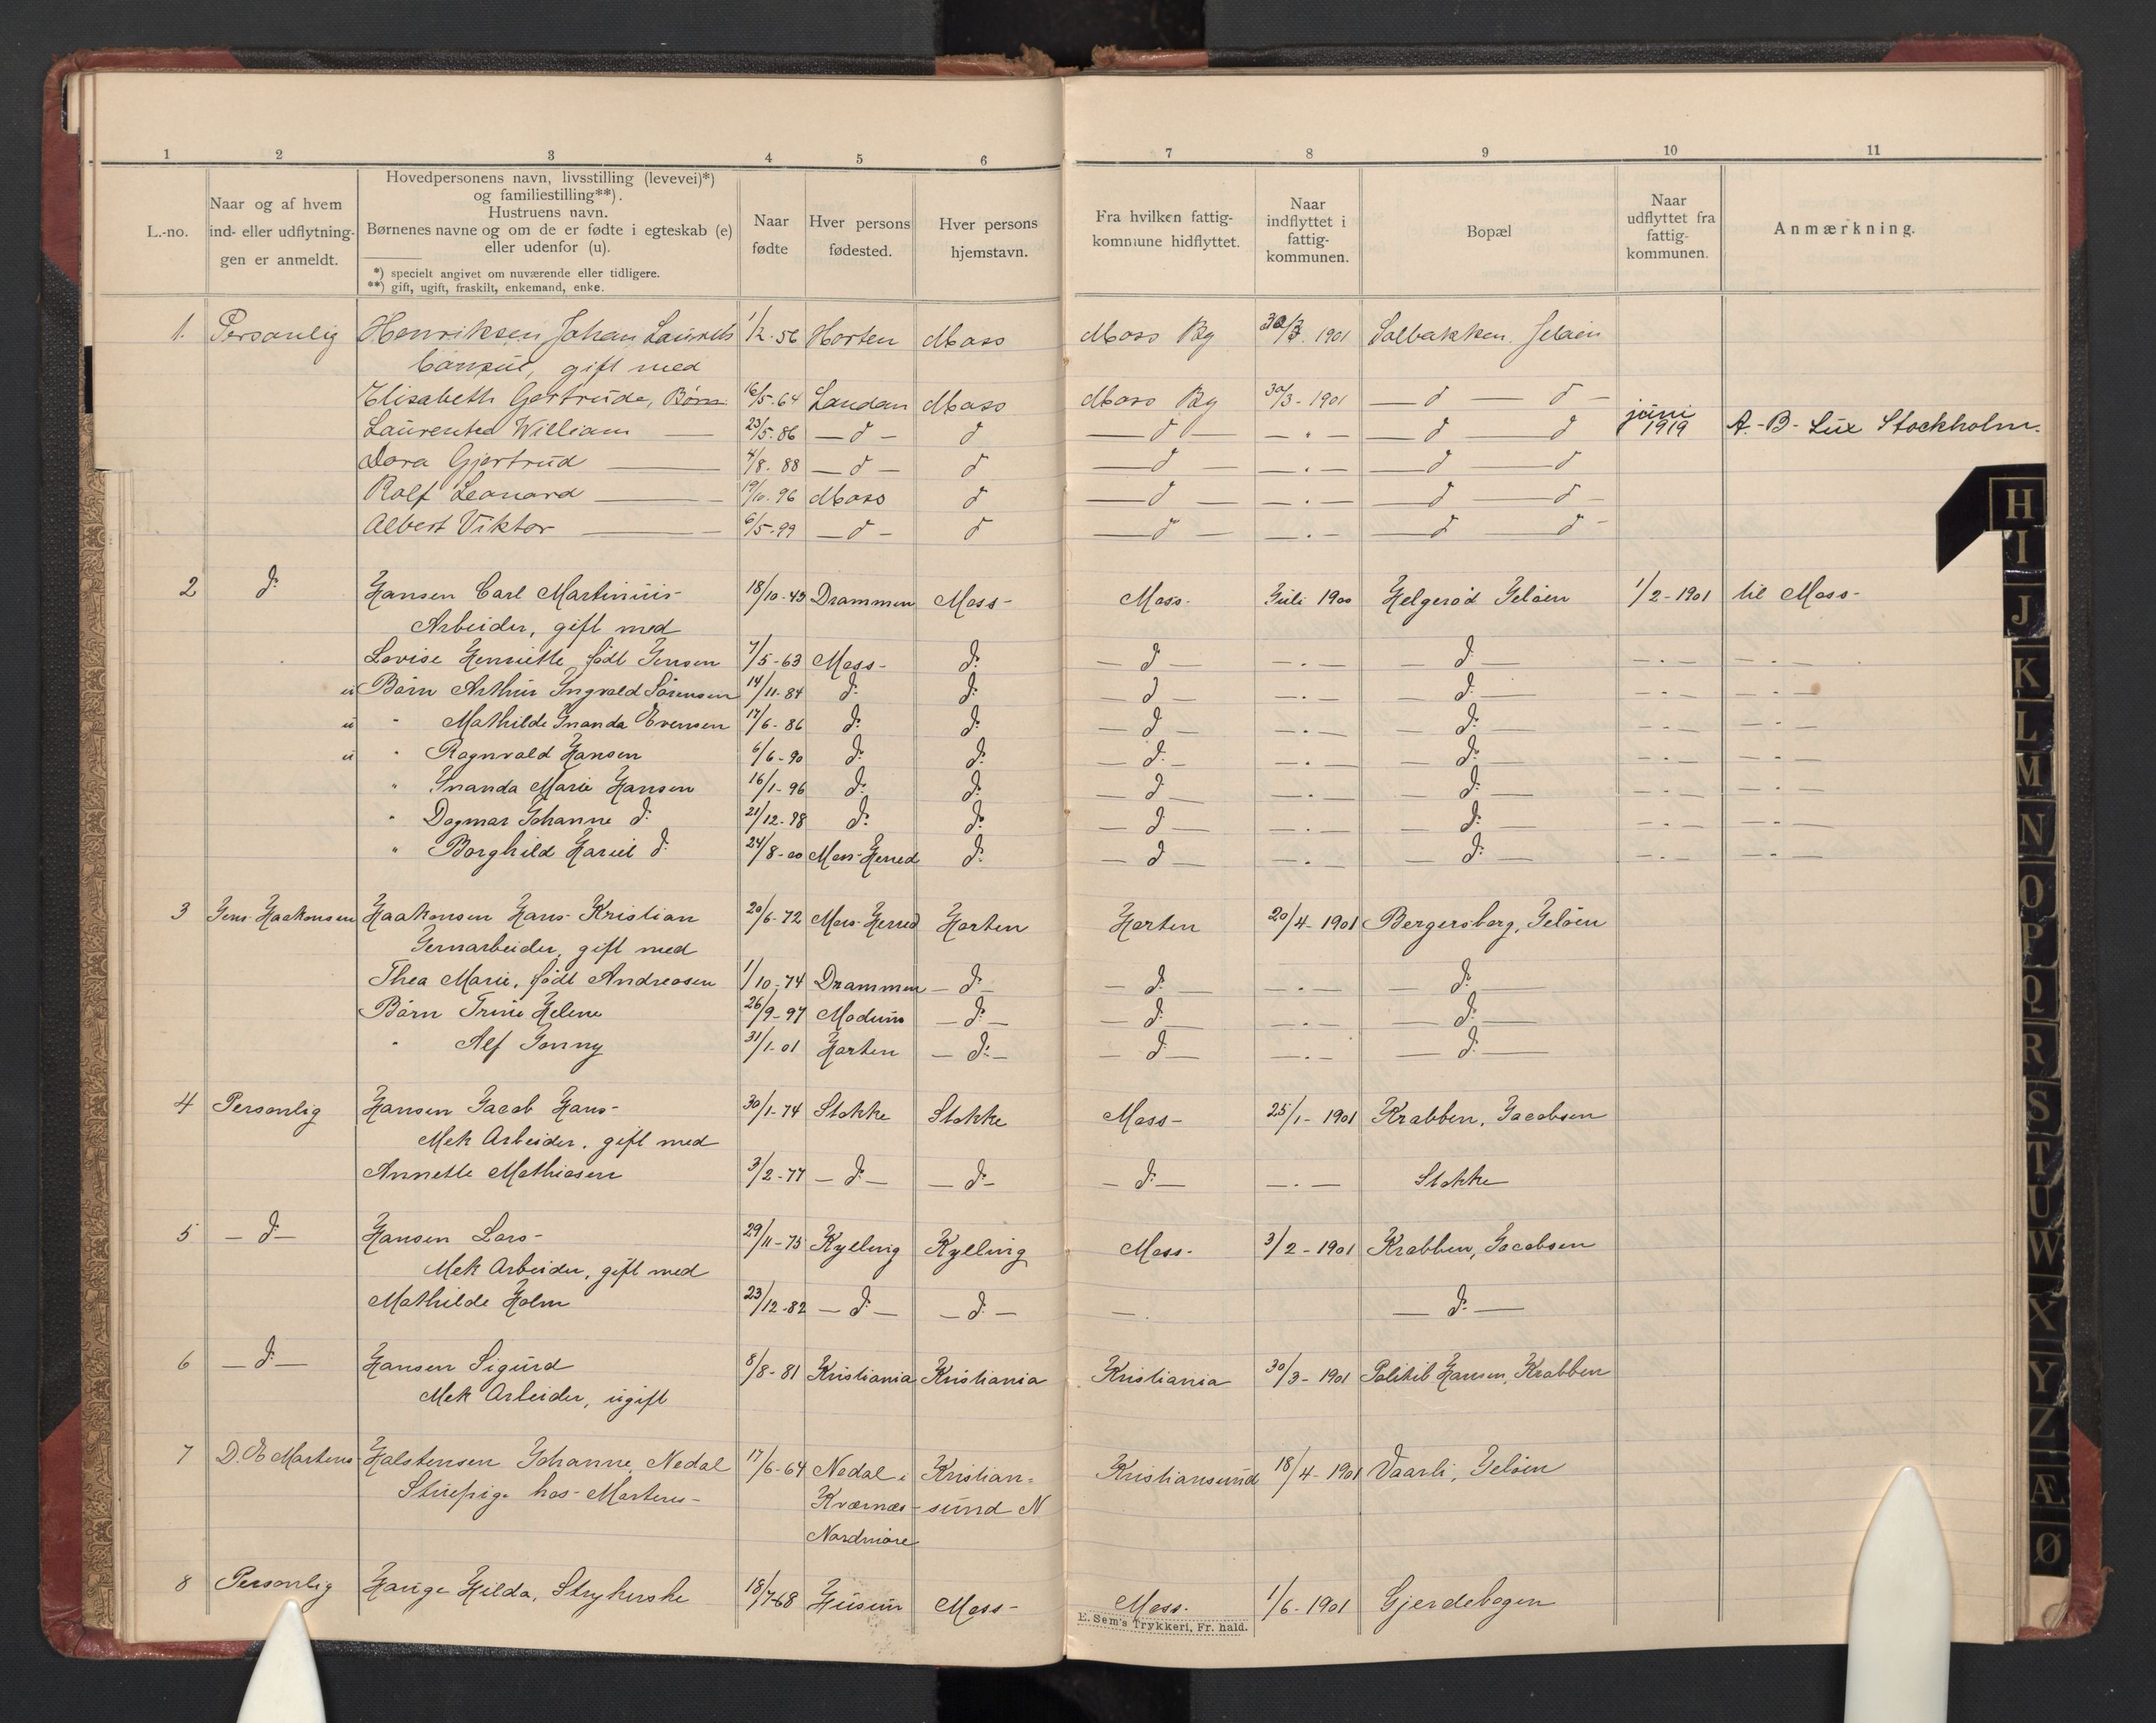 1 2 3 4 5 6 7 8 9 10 11
L.-no.
Naar og af hvem
ind- eller udflytnin-
gen er anmeldt.
Hovedpersonens navn, livsstilling (levevei)*)
og familiestilling**).
Hustruens navn.
Børnenes navne og om de er fødte i egteskab (e)
eller udenfor (u).
*) specielt angivet om nuværende eller tidligere.
**) gift, ugift, fraskilt, enkemand, enke.
Naar
fødte
Hver persons
fødested.
Hver persons
hjemstavn.
Fra hvilken fattig-
kommune hidflyttet.
Naar
indflyttet i
fattig-
kommunen.
Bopæl
Naar
udflyttet fra
fattig-
kommunen.
Anmærkning.
1. Personlig Henriksen Johan Laurits 1/2-56 Horten Moss Moss By 30/3. 1901 Solbakken, Jeløen
gift med
Elisabeth Gertrude, Børn 16/5-64 London Moss Moss By 30/3-1901 — d — d —
Laurentes William — 23/5-86 — d — d — d — — " — — d — d juni 1919 A.-B. Lux Stockholm.
Dora Gjertrud — 4/8-88 — d — d — d — — " — — d — d
Rolf Leonard — 19/10-96 Moss d — d — — " — — d — d —
Albert Viktor — 6/5-99 — d — d — d — — " — — d — d —
2 d: Hansen Carl Martinius- 18/10-43 Drammen Moss- Moss- Juli 1900 Helgerød Jeløen 1/2-1901 til Moss-
Arbeider, gift med
Lovise Henriette født Jensen 7/5-63 Moss- d: — d — — " — — d: — — " — — " —
u Børn Arthur Ingvald Sørensen 14/11-84 d: d: — d — — " — — d: — — " — — " —
u " Mathilde Inanda Evensen 17/6-86 d: d: — d — — " — — d: — — " — — " —
u " Ragnvald Hansen 6/6-90 d: d: — d: — — " — — d: — — " — — " —
" Inanda Marie Hansen 16/1-96 d: d: — d — — " — — d: — — " — — " —
" Dagmar Johanne d: 21/12-98 d: d: — d — — " — — d: — — " — — " —
" Borghild Hariet d: 24/8-00 Moss-Herred d: — d — — " — — d: — — " — — " —
3 Jens Haakonsen Haakonsen Hans Kristian 20/6-72 Moss-Herred Horten Horten 20/4-1901 Bergersborg, Jeløen
Jernarbeider, gift med
Thea Marie, født Andreasen 1/10-74 Drammen — d: — — d: — — " — — d: —
Børn Trine Helene 26/9-97 Modum — d: — — d: — — " — — d: —
" Alf Jonny 31/1-01 Horten — d: — — d — — " — — d: —
4 Personlig Hansen Jacob Hans- 30/1-74 Stokke Stokke Moss- 25/1-1901 Krabben, Jacobsen
Mek Arbeider, gift med
Annette Mathiasen 3/2-77 — d: — — d: — — d: — — " — Stokke
5 — d: — Hansen Lars- 29/11-75 Kylling Kylling Moss- 3/2-1901 Krabben, Jacobsen
Mek Arbeider, gift med
Mathilde Holm 23/12-82 — d: — — d: — — — d: —
6 — d: — Hansen Sigurd 8/8-81 Kristiania Kristiania Kristiania 30/3-1901 Politib Hansen, Krabben
Mek Arbeider, ugift
7 D. Martens Halstensen Johanne Nedal 17/6-64 Nedal i Kristian- Kristiansund 18/4-1901 Vaarli, Jeløen
Stuepige hos Martens- Kværnæs- sund N
Nordmøre
8 Personlig Hauge Hilda, Strykerske 18/7-68 Husum Moss- Moss- 1/6-1901 Gjerdebogen
E. Sem's Trykkeri, Fr. hald.
H
I
J
K
L
M
N
O
P
Q
R
S
T
U
W
X
Y
Z
Æ
Ø